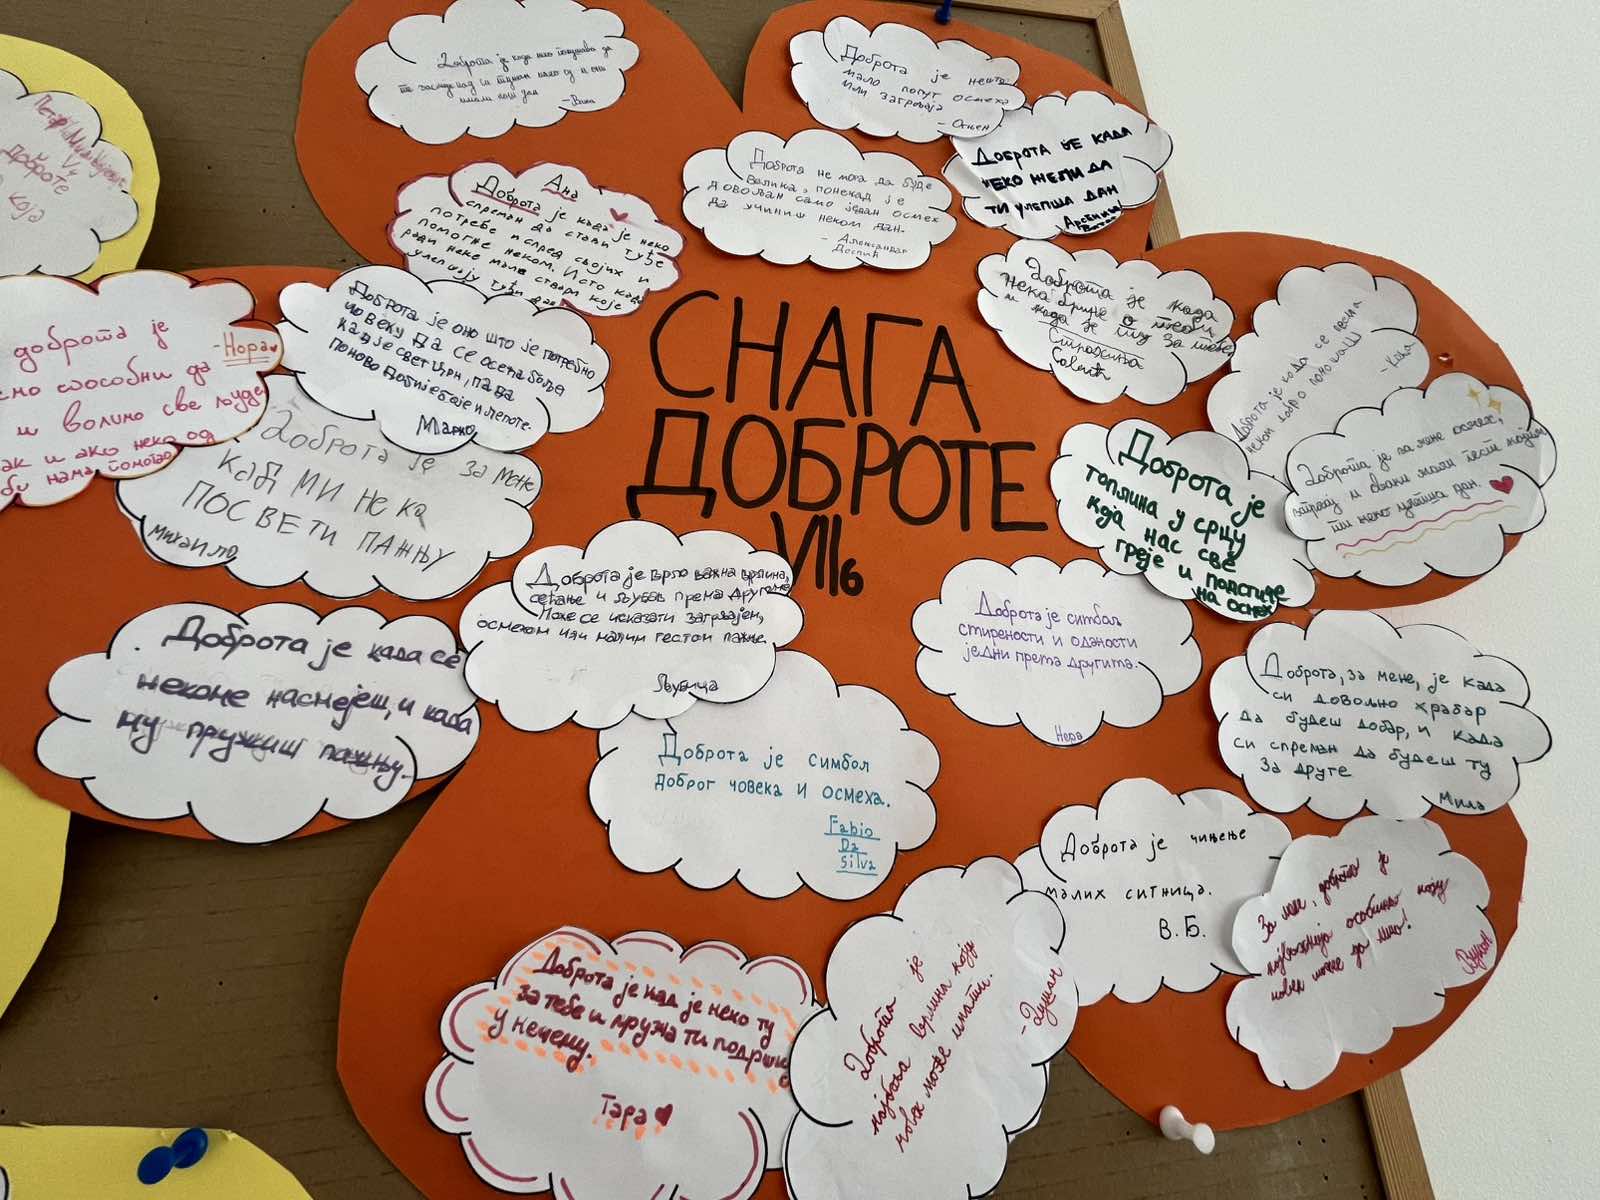 Доброта је када
те
имали лош дан
Доброта је нешто
мало попут осмеха
или загрљаја
- Огњен
Доброта је када
неко жели да
ти улепша дан
Доброта не мора да буде
велика, понекад је
довољан само један осмех
да учиниш неком дан.
- Александар
Деспић
Ана
Доброта је када је неко
спреман да стави туђе
потребе испред својих и
помогне неком. Исто када
ради неке мале ствари које
улепшају туђи дан
доброте
која
доброта је
-Нора
смо способни да
и волимо све људе
ак и ако неко од
би нама помогао
Доброта је оно што је потребно
човеку да се осећа боље
кад је свет црн, па да
поново добије боје и лепоте.
Марко
СНАГА
ДОБРОТЕ
VII6
Доброта је када
нека брине о теби,
и када је ту за тебе,
Страхиња
Доброта је када се према
неком добро понашаш
Доброта је за мене осмех,
загрљај и сваки мали гест којим
ти неко улепша дан.
Доброта је
топлина у срцу
која нас све
греје и подстиче
на осмех
Доброта је за мене
кад ми нека
посвети пажњу
Михаило
Доброта је врло важна врлина,
сећање и љубав према другоме.
Може се исказати загрљајем,
осмехом или малим гестом пажње.
Љубица
Доброта је симбол
смирености и оданости
једни према другима.
Нера
Доброта је када се
некоме насмејеш, и када
му пружиш пажњу.
Доброта, за мене, је када
си довољно храбар
да будеш добар, и када
си спреман да будеш ту
за друге
Мила
Доброта је симбол
доброг човека и осмеха.
Fabio
Da
Silva
Доброта је чињење
малих ситница.
В.Б.
За мене, доброта је
најважнија особина коју
човек може да има!
Вукан
Доброта је кад је неко ту
за тебе и пружа ти подршку
у нечему.
Тара
Доброта је
највећа врлина коју
човек може имати.
- Душан